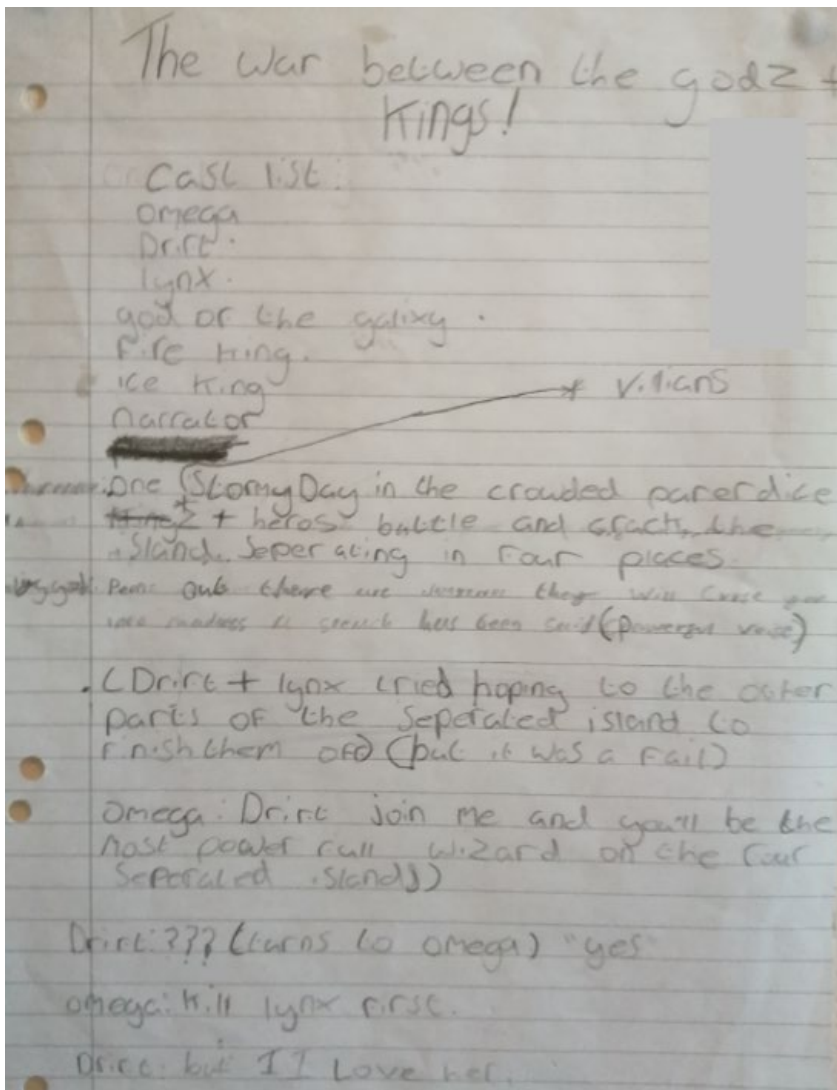 The war between the godz +
Kings!
Cast list:
omega
Drift.
lynx.
god of the galixy.
Fire King.
ice King
narrator
villians
One Stormy Day in the crowded parerdice
+ heros battle and crack the
island. Seperating in four places.
out there are they will
has been said (powerful voice)
(Drift + lynx tried hoping to the outer
parts of the seperated island to
finish them off) (but it was a fail)
omega: Drift join me and you'll be the
most power full wizard on the four
seperated islands)
Drift: ??? (turns to omega) "yes
omega: Kill lynx first.
Drift: but I I Love her.